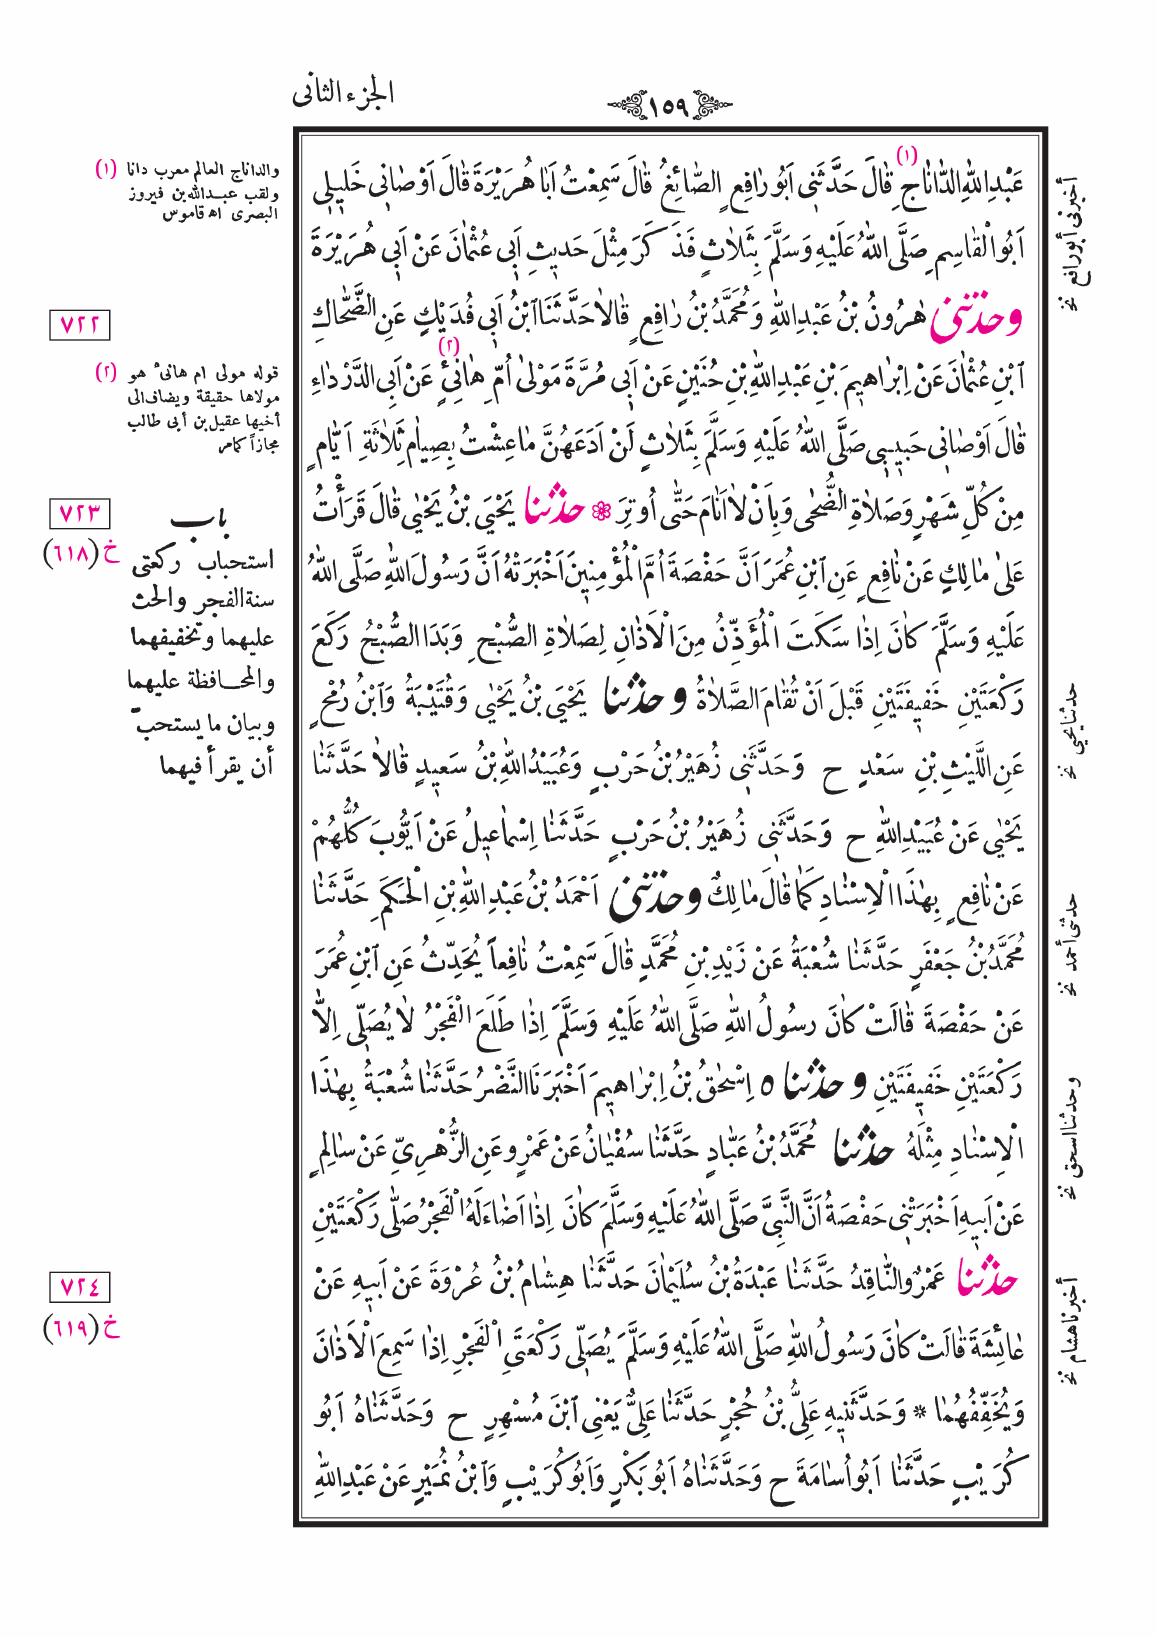 ﴿١٥٩﴾
الجزء الثانى
(١)
عَبْدِاللّٰهِ الدَّانَاجِ قَالَ حَدَّثَنِى اَبُو رَافِعٍ الصَّائِغُ قَالَ سَمِعْتُ اَبَا هُرَيْرَةَ قَالَ اَوْصَانِى خَلِيلِى
اَبُو الْقَاسِمِ صَلَّى اللّٰهُ عَلَيْهِ وَسَلَّمَ بِثَلَاثٍ فَذَكَرَ مِثْلَ حَديثِ اَبِى عُثْمَانَ عَنْ اَبِى هُرَيْرَةَ
وحَدَّثَنِى هٰرُونُ بْنُ عَبْدِاللّٰهِ وَمُحَمَّدُ بْنُ رَافِعٍ قَالَا حَدَّثَنَا ابْنُ اَبِى فُدَيْكٍ عَنِ الضَّحَّاكِ
(٢)
ابْنِ عُثْمَانَ عَنْ اِبْرَاهِيمَ بْنِ عَبْدِاللّٰهِ بْنِ حُنَيْنٍ عَنْ اَبِى مُرَّةَ مَوْلَى اُمِّ هَانِئٍ عَنْ اَبِى الدَّرْدَاءِ
قَالَ اَوْصَانِى حَبِيبِى صَلَّى اللّٰهُ عَلَيْهِ وَسَلَّمَ بِثَلَاثٍ لَنْ اَدَعَهُنَّ مَا عِشْتُ بِصِيَامِ ثَلَاثَةِ اَيَّامٍ
مِنْ كُلِّ شَهْرٍ وَصَلَاةِ الضُّحٰى وَبِاَنْ لَا اَنَامَ حَتّٰى اُوتِرَ ❁ حَدَّثَنَا يَحْيَى بْنُ يَحْيٰى قَالَ قَرَأْتُ
عَلٰى مَالِكٍ عَنْ نَافِعٍ عَنِ ابْنِ عُمَرَ اَنَّ حَفْصَةَ اُمَّ الْمُؤْمِنِينَ اَخْبَرَتْهُ اَنَّ رَسُولَ اللّٰهِ صَلَّى اللّٰهُ
عَلَيْهِ وَسَلَّمَ كَانَ اِذَا سَكَتَ الْمُؤَذِّنُ مِنَ الْاَذَانِ لِصَلَاةِ الصُّبْحِ وَبَدَا الصُّبْحُ رَكَعَ
رَكْعَتَيْنِ خَفِيفَتَيْنِ قَبْلَ اَنْ تُقَامَ الصَّلَاةُ وحَدَّثَنَا يَحْيَى بْنُ يَحْيٰى وَقُتَيْبَةُ وَابْنُ رُمْحٍ
عَنِ اللَّيْثِ بْنِ سَعْدٍ ح وَحَدَّثَنِى زُهَيْرُ بْنُ حَرْبٍ وَعُبَيْدُ اللّٰهِ بْنُ سَعِيدٍ قَالَا حَدَّثَنَا
يَحْيٰى عَنْ عُبَيْدِاللّٰهِ ح وَحَدَّثَنِى زُهَيْرُ بْنُ حَرْبٍ حَدَّثَنَا اِسْمَاعِيلُ عَنْ اَيُّوبَ كُلُّهُمْ
عَنْ نَافِعٍ بِهٰذَا الْاِسْنَادِ كَمَا قَالَ مَالِكٌ وحَدَّثَنِى اَحْمَدُ بْنُ عَبْدِاللّٰهِ بْنِ الْحَكَمِ حَدَّثَنَا
مُحَمَّدُ بْنُ جَعْفَرٍ حَدَّثَنَا شُعْبَةُ عَنْ زَيْدِ بْنِ مُحَمَّدٍ قَالَ سَمِعْتُ نَافِعاً يُحَدِّثُ عَنِ ابْنِ عُمَرَ
عَنْ حَفْصَةَ قَالَتْ كَانَ رَسُولُ اللّٰهِ صَلَّى اللّٰهُ عَلَيْهِ وَسَلَّمَ اِذَا طَلَعَ الْفَجْرُ لَا يُصَلِّى اِلَّا
رَكْعَتَيْنِ خَفِيفَتَيْنِ وحَدَّثَنَا ه اِسْحٰقُ بْنُ اِبْرَاهِيمَ اَخْبَرَنَا النَّضْرُ حَدَّثَنَا شُعْبَةُ بِهٰذَا
الْاِسْنَادِ مِثْلَهُ حَدَّثَنَا مُحَمَّدُ بْنُ عَبَّادٍ حَدَّثَنَا سُفْيَانُ عَنْ عَمْرٍو عَنِ الزُّهْرِىِّ عَنْ سَالِمٍ
عَنْ اَبِيهِ اَخْبَرَتْنِى حَفْصَةُ اَنَّ النَّبِىَّ صَلَّى اللّٰهُ عَلَيْهِ وَسَلَّمَ كَانَ اِذَا اَضَاءَ لَهُ الْفَجْرُ صَلَّى رَكْعَتَيْنِ
حَدَّثَنَا عَمْرٌو النَّاقِدُ حَدَّثَنَا عَبْدَةُ بْنُ سُلَيْمَانَ حَدَّثَنَا هِشَامُ بْنُ عُرْوَةَ عَنْ اَبِيهِ عَنْ
عَائِشَةَ قَالَتْ كَانَ رَسُولُ اللّٰهِ صَلَّى اللّٰهُ عَلَيْهِ وَسَلَّمَ يُصَلِّى رَكْعَتَىِ الْفَجْرِ اِذَا سَمِعَ الْاَذَانَ
وَيُخَفِّفُهُمَا * وَحَدَّثَنِيهِ عَلِىُّ بْنُ حُجْرٍ حَدَّثَنَا عَلِىٌّ يَعْنِى ابْنَ مُسْهِرٍ ح وَحَدَّثَنَاهُ اَبُو
كُرَيْبٍ حَدَّثَنَا اَبُو اُسَامَةَ ح وَحَدَّثَنَاهُ اَبُو بَكْرٍ وَاَبُو كُرَيْبٍ وَابْنُ نُمَيْرٍ عَنْ عَبْدِاللّٰهِ
أخبرنى أبو رافع نخ
حدثنا يحيى نخ
حدثنى أحمد نخ
وحدثنا اسحق نخ
أخبرنا هشام نخ
(١) والداناج العالم معرب دانا
ولقب عبدالله بن فيروز
البصرى اه قاموس
٧٢٢
(٢) قوله مولى ام هانئ هو
مولاها حقيقة ويضاف الى
أخيها عقيل بن أبى طالب
مجازاً كامر
٧٢٣
خ (٦١٨)
باب
استحباب ركعتى
سنة الفجر والحث
عليهما وتخفيفهما
والمحافظة عليهما
وبيان ما يستحب
أن يقرأ فيهما
٧٢٤
خ (٦١٩)